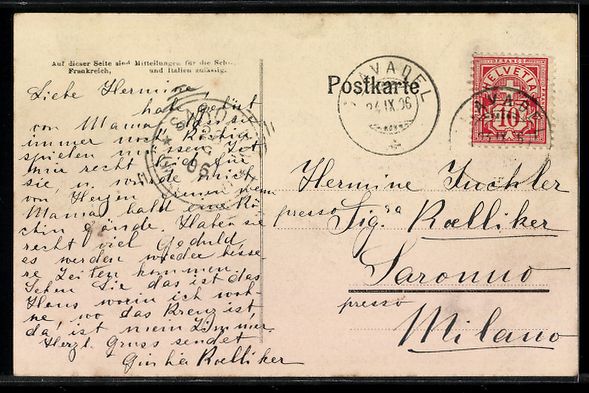 Auf dieser Seite sind Mitteilungen für die Schweiz,
Frankreich, und Italien zulässig.
Postkarte
24.IX.06
HELVETIA
FRANCO
10
Liebe Hermine,
hab gehört
von Mama, dass sie
immer noch
spielen mir
mir recht leid für
sie, u. würde mich
von Herzen wenn
Mama bald eine Kö-
chin fände. Haben sie
recht viel Geduld,
es werden wieder besse-
re Zeiten kommen.
Sehen Sie das ist das
Haus worin ich woh-
ne, wo das Kreuz ist
da, ist mein Zimmer.
Herzl. Gruss sendet
Giulia Roelliker
Hermine Tuchler
presso Sig.ra Roelliker
Saronno
presso
Milano